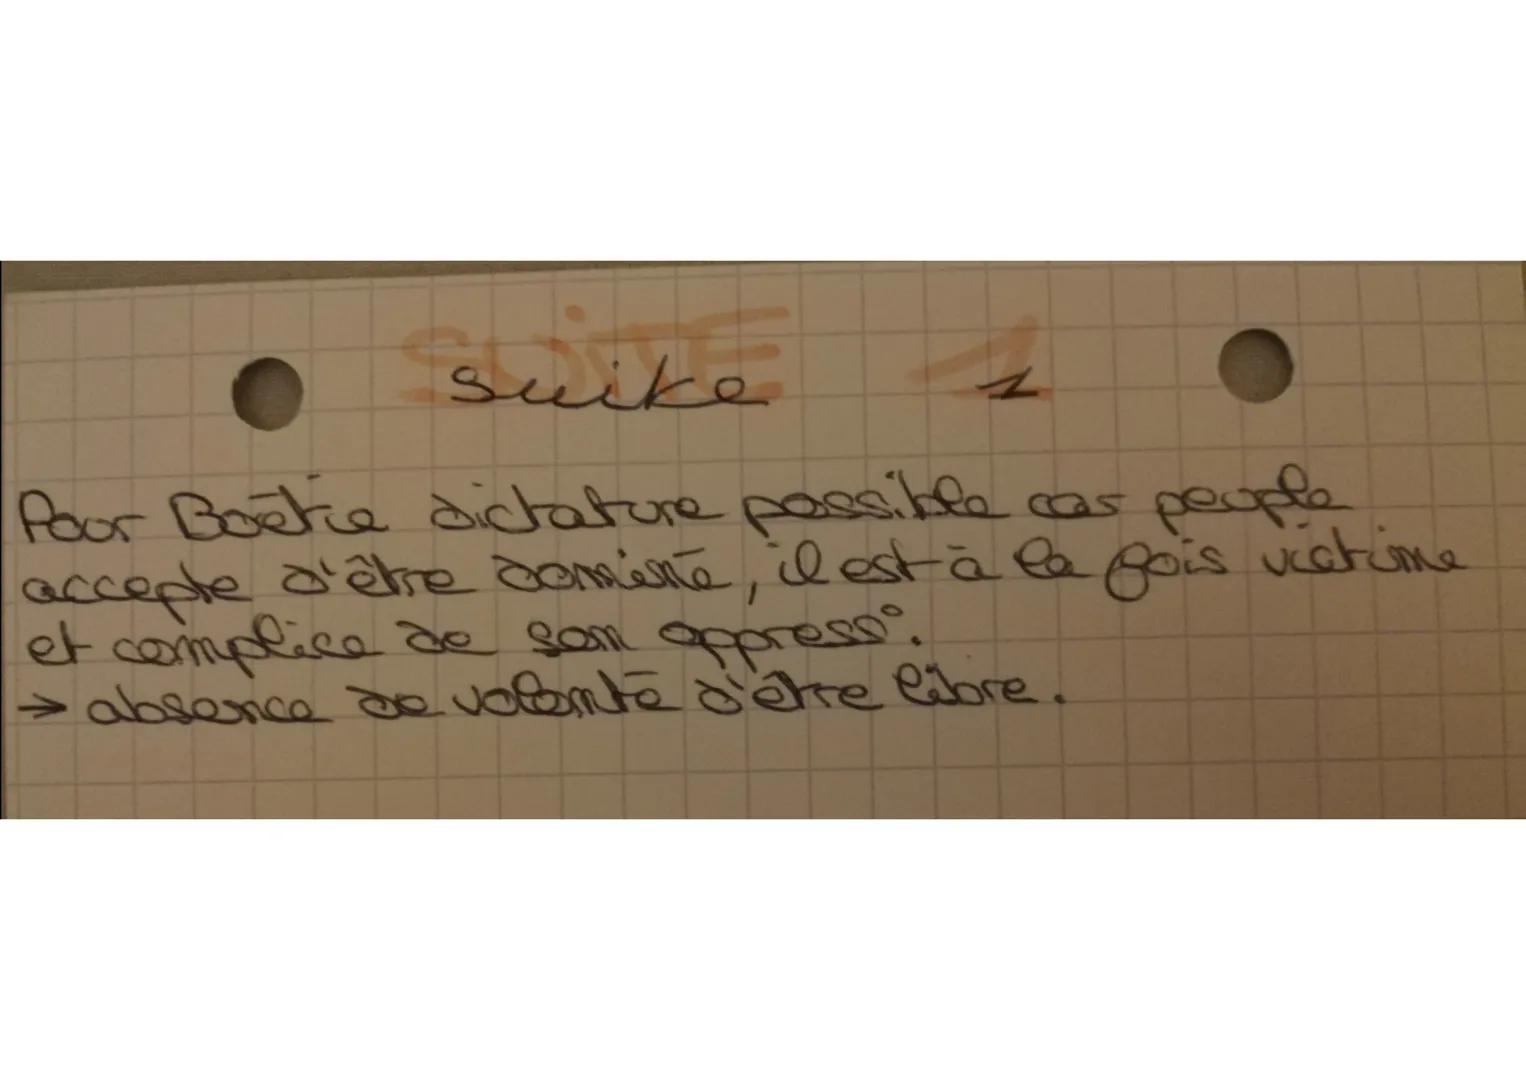 SUITE 1
suite 1
Pour Boétie dictature possible car peuple
accepte d'être dominé, il est à la fois victime
et complice de son oppress°.
→ absence de volonté d'être libre.